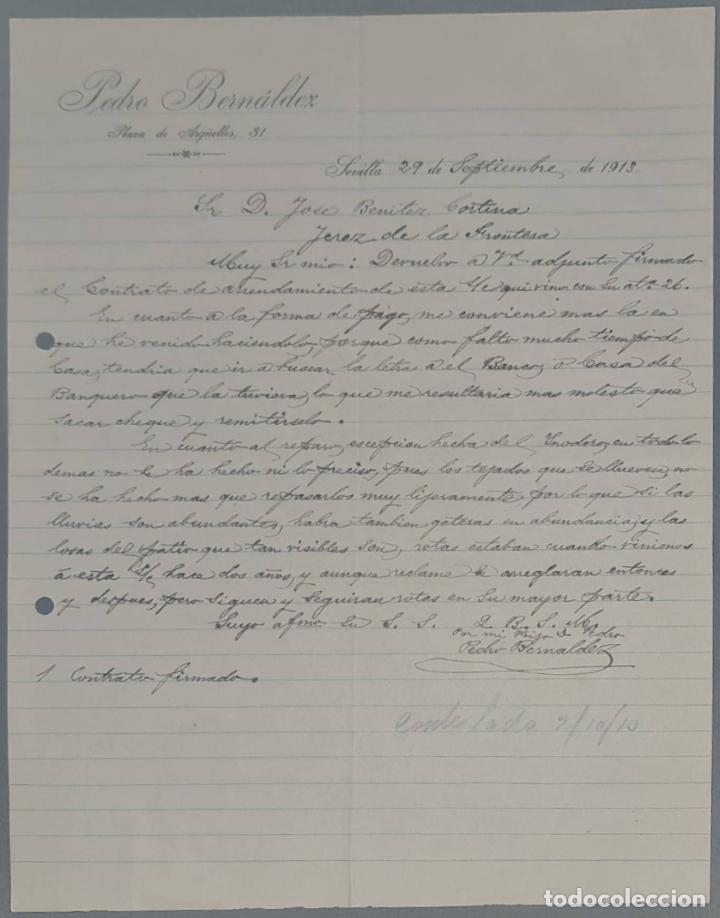 Pedro Bernáldez
Plaza de Argüelles, 31
Sevilla 29 de Septiembre de 1913
Sr D. Jose Benitez Cortina
Jerez de la Frontera
Muy Sr mio: Devuelvo a Vd. adjunto firmado
el Contrato de arrendamiento de esta s/c que vino con su atª 26.
En cuanto a la forma de pago, me conviene mas la en
que he venido haciendolo porque como falto mucho tiempo de
Casa, tendria que ir a buscar la letra a el Banco, o Casa del
Banquero que la tuviera, lo que me resultaria mas molesto que
sacar cheque y remitirselo.
En cuanto al reparo, escepcion hecha del Ynodoro, en todo lo
demas no se ha hecho ni lo preciso, pues los tejados que se llueven, no
se ha hecho mas que repasarlos muy lijeramente por lo que si las
lluvias son abundantes, habra tambien goteras en abundancia, y las
losas del patio que tan visibles son, rotas estaban cuando vinimos
á esta s/c hace dos años, y aunque reclame se arreglaran entonces
y despues, pero siguen y seguiran rotas en su mayor parte.
Suyo afmo Su S. S. Q. B. S. M.
Por mi Hijo D. Pedro
Pedro Bernaldez
1 Contrato firmado.
Contestada 2/10/13
todocoleccion